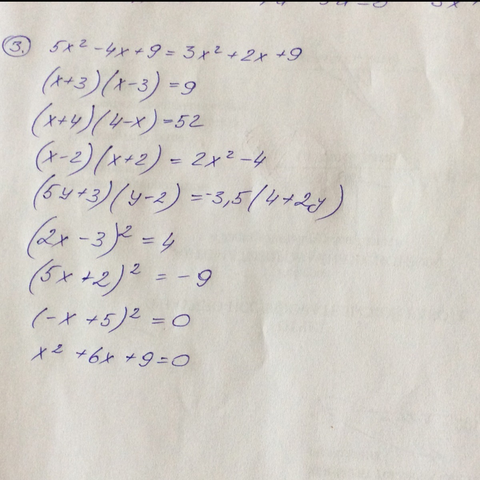 3. 5x² - 4x + 9 = 3x² + 2x + 9
(x+3)(x-3) = 9
(x+4)(4-x) = 52
(x-2)(x+2) = 2x² - 4
(5y+3)(y-2) = -3,5(4+2y)
(2x - 3)² = 4
(5x + 2)² = -9
(-x + 5)² = 0
x² + 6x + 9 = 0